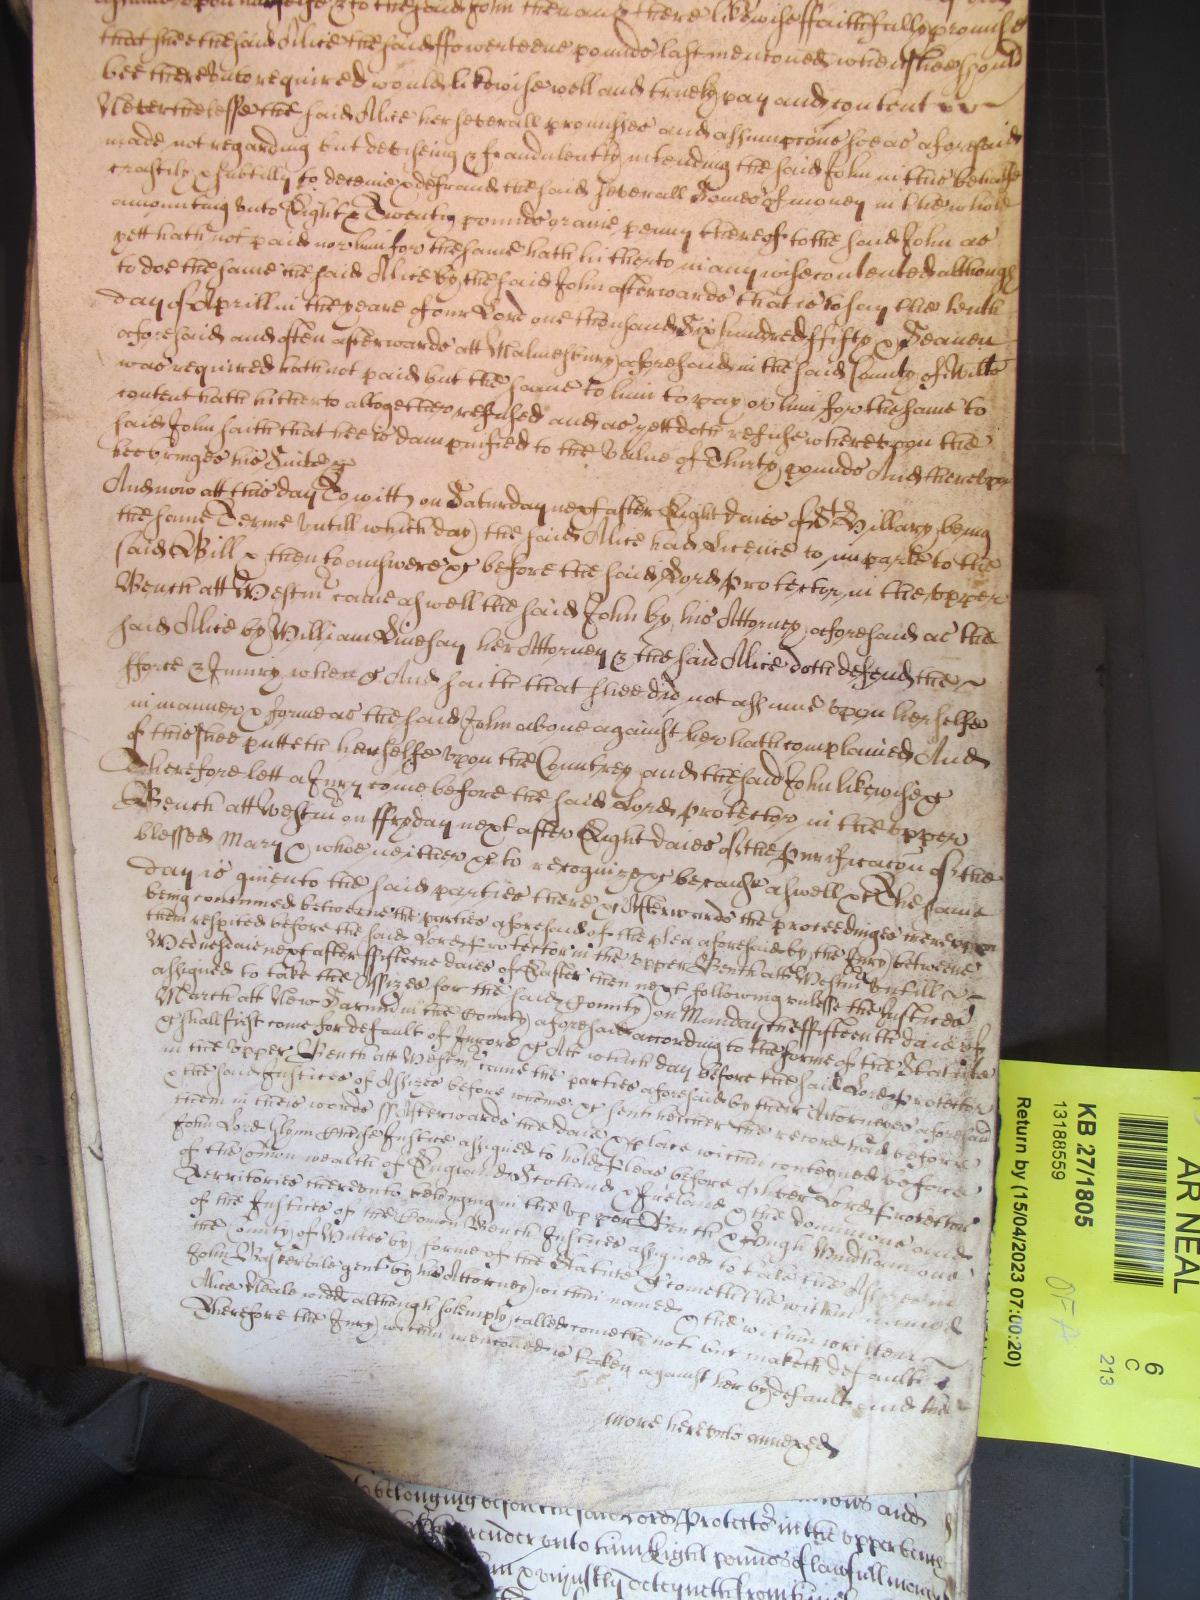 assume upon herselfe & to the said John then and there likewise faithfully promise
that shee the said Alice the said ffowerteene pounds last mentoned when shee should
bee thereunto required would likewise well and truely pay and content
Neverthelesse the said Alice her severall promisses and assumptions soe as aforesaid
made not regarding but deviseing & fraudulently intending the said John in this behalfe
craftily & subtilly to deceive & defraud the said severall Somes of money in the whole
amounting unto Eight & Twenty pounds or anie penny thereof to the said John as
yett hath not paid nor him for the same hath hitherto in any wise contented although
to doe the same the said Alice by the said John afterwards that is to say the tenth
day of Aprill in the yeare of our Lord one thousand Six hundred ffifty & Seaven
aforesaid and often afterwards att Malmesbury aforesaid in the said County of Wilts
was required hath not paid but the same to him to pay or him for the same to
content hath hitherto altogether refused and as yett doth refuse whereupon the
said John saith that hee is dampnified to the value of Thirty pounds And thereupon
hee bringes his Suite &c
And now att this day To witt on Saturday next after Eight daies of St Hillary being
the same Terme untill which day the said Alice had Licence to imparle to the
said Bill & then to answere &c before the said Lord Protector in the upper
Bench att Westmr came aswell the said John by his Attorney aforesaid as the
said Alice by William Linesay her Attorney & the said Alice doth defend the
fforce & Iniury when &c And saith that shee did not assume upon herselfe
in manner & forme as the said John above against her hath complained And
of this shee putteth herselfe upon the Countrey and the said John likewise &c
Therefore lett a Jury come before the said Lord Protector in the upper
Bench att Westmr on ffryday next after Eight daies of the Purificacon of the
blessed Mary & whoe neither &c to recognize &c because aswell &c The same
day is given to the said parties there &c Afterwards the proceedings thereupon
being continued betweene the parties aforesaid of the plea aforesaid by the Jury betweene
them respited before the said Lord Protector in the upper Bench att Westmr untill
Wednesdaie next after ffifteene daies of Easter then next following unlesse the Justices
assigned to take the Assizes for the said County on Munday the ffifteenth daie of
March att New Sarum in the County aforesaid according to the forme of the Statute
&c shall first come for default of Jurors &c Att which day before the said Lord Protector
in the upper Bench att Westmr came the parties aforesaid by their Attorneyes aforesaid
& the said Justices of Assizes before whome &c sent hither the record had before
them in theis words ss Afterwards the daie & place within conteyned before
John Lord Glynn Cheife Justice assigned to hold Pleas before Oliver Lord Protector
of the Comon wealth of England Scotland & Ireland & the dominions and
Territories thereunto belonging in the upper Bench & Hugh Windham one
of the Justices of the Comon Bench Justices assigned to take the Assizes in
the County of Wiltes by forme of the Statute &c cometh the within named
John Baskervile gent by his Attorney within named & the within written
Alice Neale widd although solemply called cometh not but maketh default
Therefore the Jury within mentoned is taken against her by default and the
more hereunto annexed
belonging before the said Lord Protector in the upper bench
render unto him Eight pounds of lawfull money
& uniustly deteyneth from him
AR NEAL
6
C
213
KB 27/1805
13188559
Return by (15/04/2023 07:00:20)